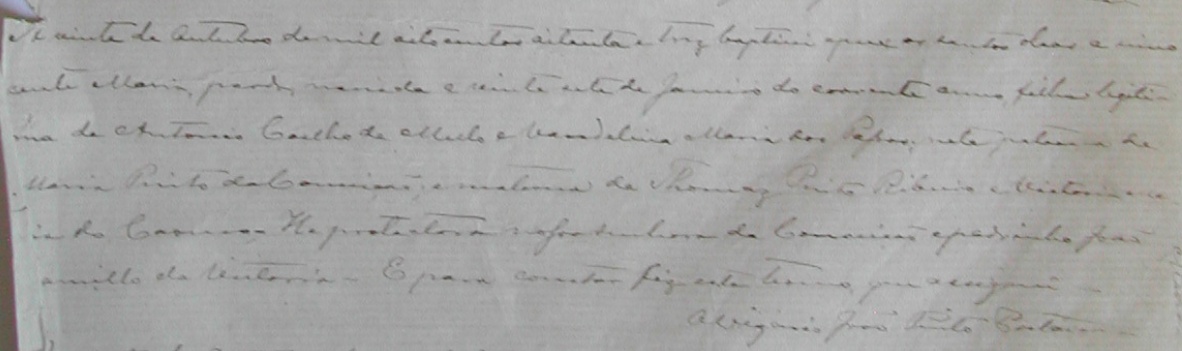 vinte de Outubro de mil oito centos oitenta e trez baptisei e puz os santos oleos a inno
cente Maria, parda, nascida a vinte sete de Janeiro do corrente anno, filha legiti
ma de Antonio Coelho de Mello e Vandelina Maria dos Passos; neta paterna de
Maria Pinto da Conceição, e materna de Thomaz Pinto Ribeiro e Victoria
do Carmo. He protectora nossa Senhora da Conceição e padrinho João
Camillo da Victoria. E para constar fiz este termo, que assignei
O Vigario João Pinto